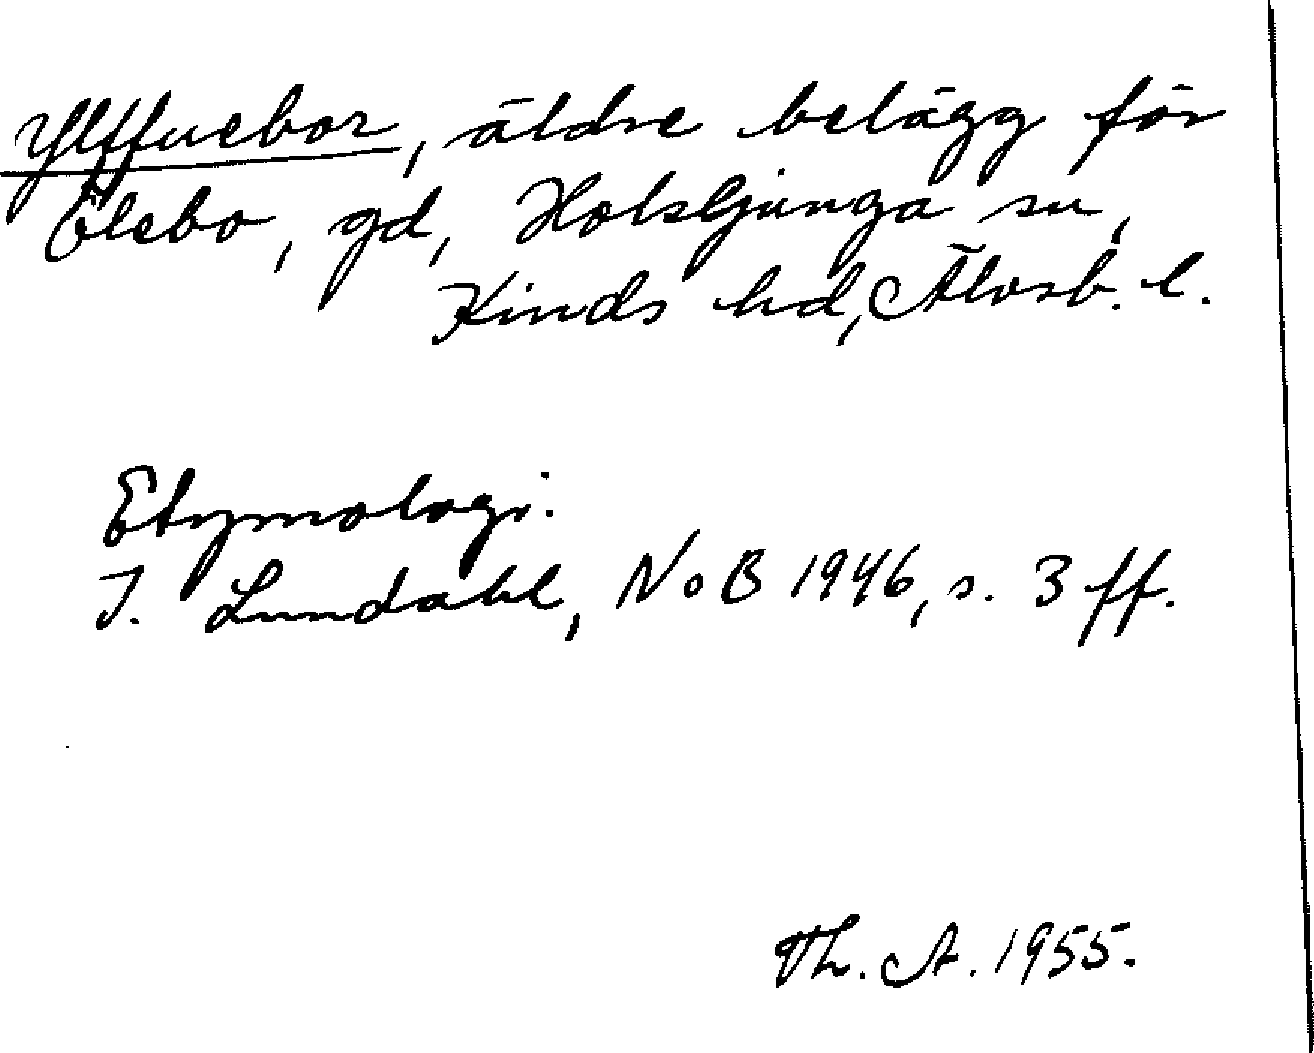 Ylffuebor, äldre belägg för
Ölebo, gd, Holsljunga sn,
Kinds hd, Älvsb. l.
Etymologi.
I. Lundahl, NoB 1946, s. 3 ff.
Th. A. 1955.